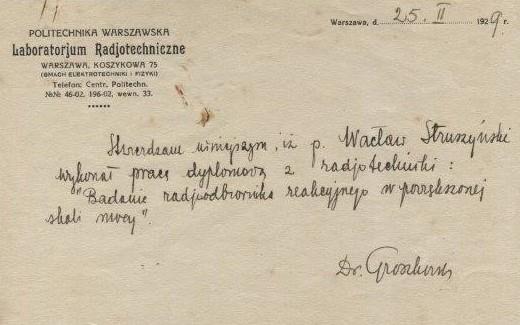 POLITECHNIKA WARSZAWSKA
Laboratorjum Radjotechniczne
WARSZAWA, KOSZYKOWA 75
(GMACH ELEKTROTECHNIKI I FIZYKI)
Telefon: Centr. Politechn.
№№ 46-02, 196-02, wewn. 33.
Warszawa, d. 25. II 1929 r.
Stwierdzam niniejszym, iż p. Wacław Struszyński
wykonał pracę dyplomową z radjotechniki:
"Badanie radjoodbiornika reakcyjnego w powiększonej
skali mocy".
Dr. Groszkowski